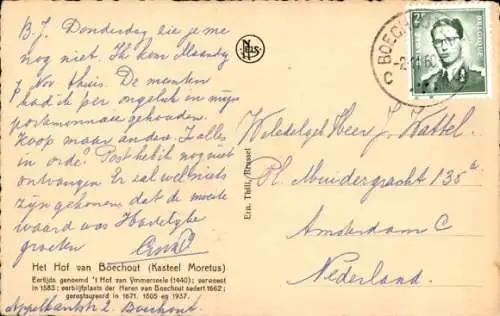 B.J. Donderdag zie je me
nog niet. Ik kom Maandag
7 Nov. thuis. De munten
had ik per ongeluk in mijn
portemonnaie gehouden.
Koop maar andere. Is alles
in orde? Post heb ik nog niet
ontvangen. Er zal wel niets
zijn gekomen dat de moeite
waard was. Hartelijke
groeten
Het Hof van Boechout (Kasteel Moretus)
Eertijds genoemd 't Hof van Ymmerseele (1440); verwoest
in 1583; verblijfplaats der Heren van Boechout sedert 1662;
gerestaureerd in 1671, 1805 en 1937.
Appelkantstr 2. Boechout.
Nels
Ern. Thill, Brussel
BOECH
-2.11.60
2F
BELGIQUE
Weledelgeb Heer J. Wattel.
Pl. Muidergracht 135a
Amsterdam C
Nederland.